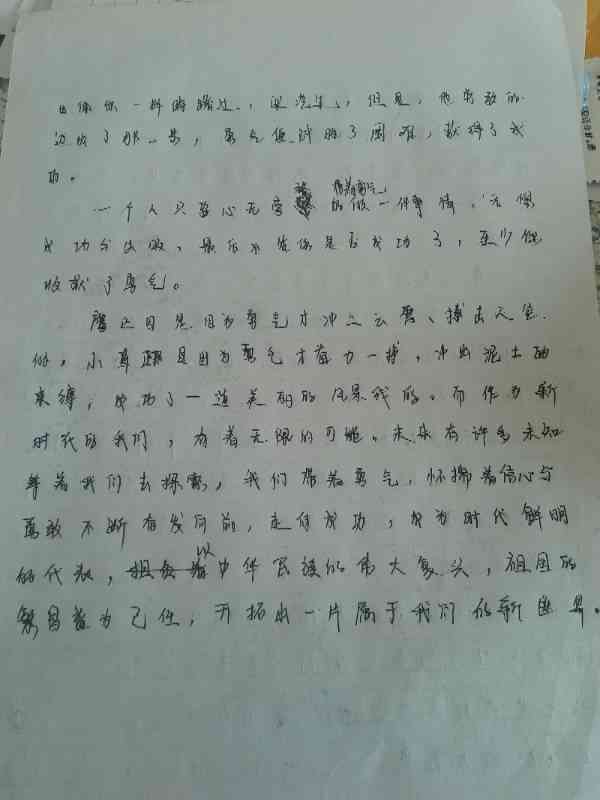 也像你一样踌躇过、迷茫过,但是,他勇敢的
迈出了那一步,勇气便战胜了困难,获得了成
功。
一个人只要心无旁 带着勇气 做一件事情,无惧
成功与失败,最后不管你是否成功了,至少你
收获了勇气。
鹰 因为勇气才冲上云霄、搏击天空
的,小草 是因为勇气才奋力一搏,冲出泥土的
束缚,成为了一道美丽的风景线的。而作为新
时代的我们,有着无限的可能。未来有许多未知
等着我们去探索,我们带着勇气,怀揣着信心与
勇敢不断奋发向前,走向成功,成为时代鲜明
的代表,以中华民族的伟大复兴,祖国的
繁昌盛为己任,开拓出一片属于我们的新世界。